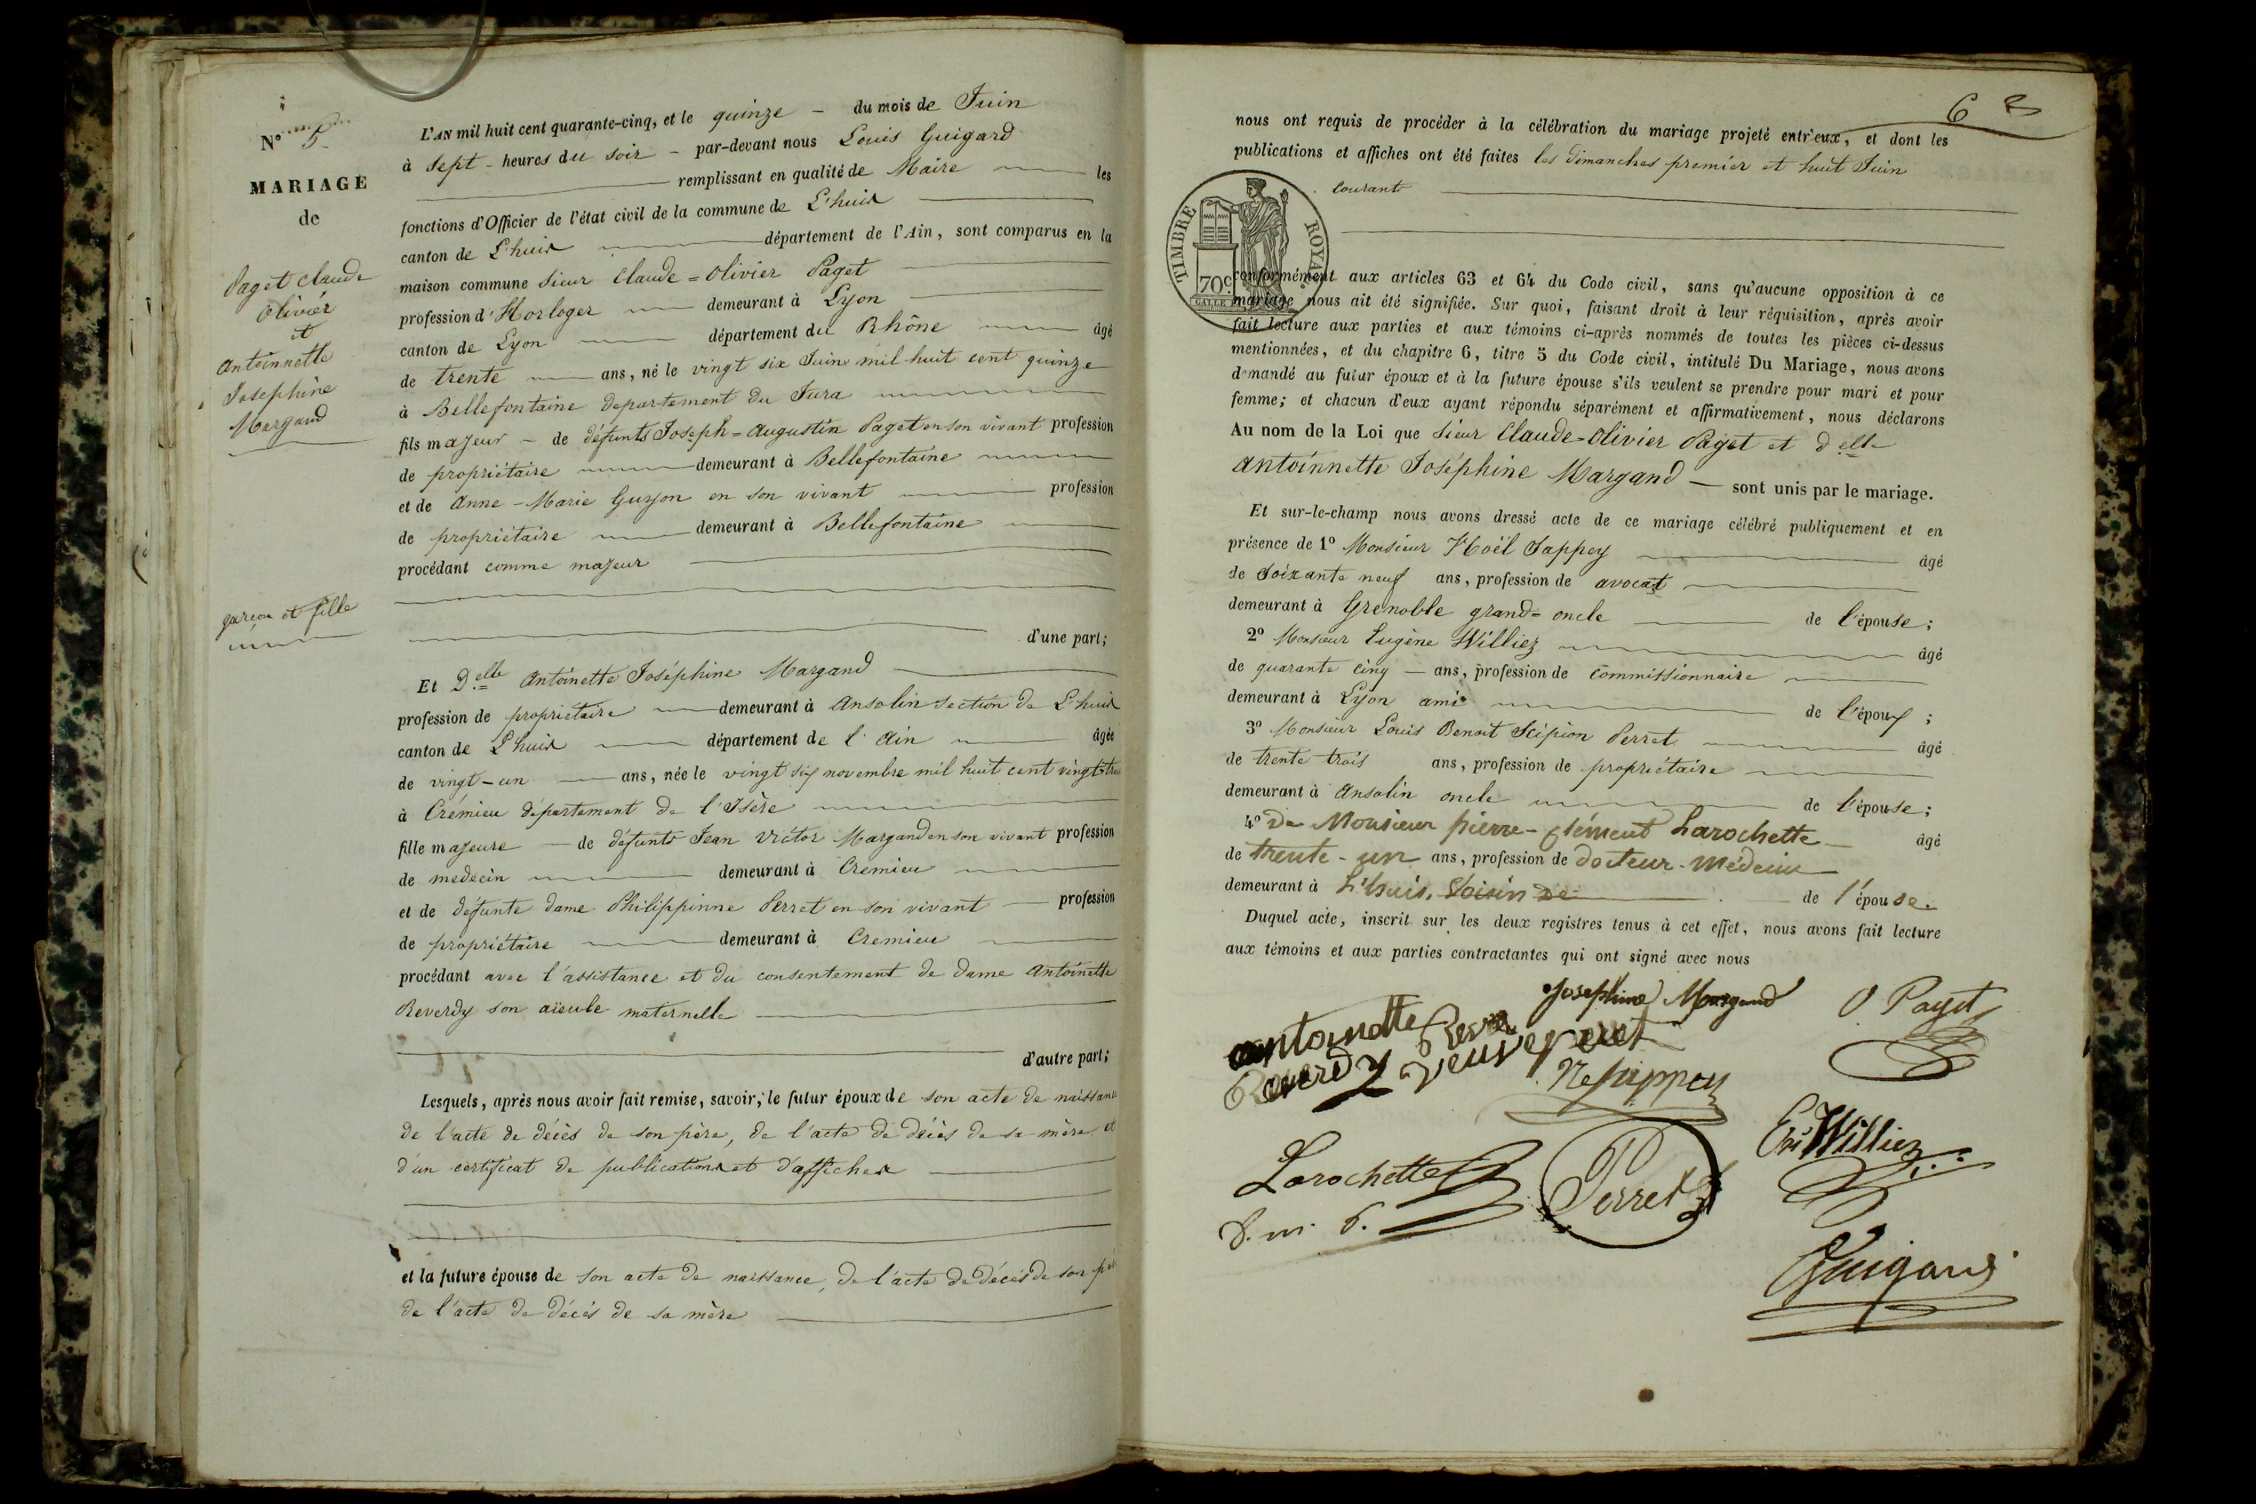 N° 5
MARIAGE
de
Paget Claude
Olivier
et
Antoinnette
Josephine
Margand
garçon et fille
L'AN mil huit cent quarante-cinq, et le quinze - du mois de Juin
à Sept - heures du soir - par-devant nous Louis Guigard
remplissant en qualité de Maire les
fonctions d'Officier de l'état civil de la commune de L'huis
canton de L'huis département de l'Ain, sont comparus en la
maison commune Sieur Claude=Olivier Paget
profession d'Horloger demeurant à Lyon
canton de Lyon département du Rhône âgé
de trente ans, né le vingt six Juin mil huit cent quinze
à Bellefontaine departement du Jura
fils majeur - de défunts Joseph=Augustin Paget en son vivant profession
de propriétaire demeurant à Bellefontaine
et de Anne-Marie Guyon en son vivant profession
de propriétaire demeurant à Bellefontaine
procédant comme majeur
d'une part;
Et Delle Antoinette Joséphine Margand
profession de propriétaire demeurant à Ansolin section de L'huis
canton de L'huis département de l'Ain âgée
de vingt-un ans, née le vingt six novembre mil huit cent vingt-trois
à Crémieu département de l'Isère
fille majeure - de défunts Jean Victor Margand en son vivant profession
de medecin demeurant à Cremieu
et de défunte dame Philippinne Perret en son vivant profession
de propriétaire demeurant à Cremieu
procédant avec l'assistance et du consentement de dame Antoinette
Reverdy son aïeule maternelle
d'autre part;
Lesquels, après nous avoir fait remise, savoir, le futur époux de son acte de naissance
de l'acte de décès de son père, de l'acte de décès de sa mère et
d'un certificat de publications et d'affiches
et la future épouse de son acte de naissance, de l'acte de décès de son père
de l'acte de décès de sa mère
6
nous ont requis de procéder à la célébration du mariage projeté entr'eux, et dont les
publications et affiches ont été faites les dimanches premier et huit Juin
courant
TIMBRE ROYAL
70c.
conformément aux articles 63 et 64 du Code civil, sans qu'aucune opposition à ce
mariage nous ait été signifiée. Sur quoi, faisant droit à leur réquisition, après avoir
fait lecture aux parties et aux témoins ci-après nommés de toutes les pièces ci-dessus
mentionnées, et du chapitre 6, titre 5 du Code civil, intitulé Du Mariage, nous avons
demandé au futur époux et à la future épouse s'ils veulent se prendre pour mari et pour
femme; et chacun d'eux ayant répondu séparément et affirmativement, nous déclarons
Au nom de la Loi que Sieur Claude=Olivier Paget et delle
Antoinnette Joséphine Margand - sont unis par le mariage.
Et sur-le-champ nous avons dressé acte de ce mariage célébré publiquement et en
présence de 1° Monsieur Noël Jappey âgé
de Soixante neuf ans, profession de avocat
demeurant à Grenoble grand=oncle de l'épouse;
2° Monsieur Eugène Williez âgé
de quarante cinq - ans, profession de Commissionnaire
demeurant à Lyon ami de l'époux;
3° Monsieur Louis Benoit Scipion Perret âgé
de trente trois ans, profession de propriétaire
demeurant à Ansolin oncle de l'épouse;
4° de Monsieur pierre-clément Larochette âgé
de trente-un ans, profession de docteur-Médecin
demeurant à L'huis. Voisin de de l'épouse.
Duquel acte, inscrit sur les deux registres tenus à cet effet, nous avons fait lecture
aux témoins et aux parties contractantes qui ont signé avec nous
Josephine Margand
O Paget
antoinette
Reverdy veuve peret
Ne Jappey
Larochette
D. m. P.
Perret
Williez
Guigard